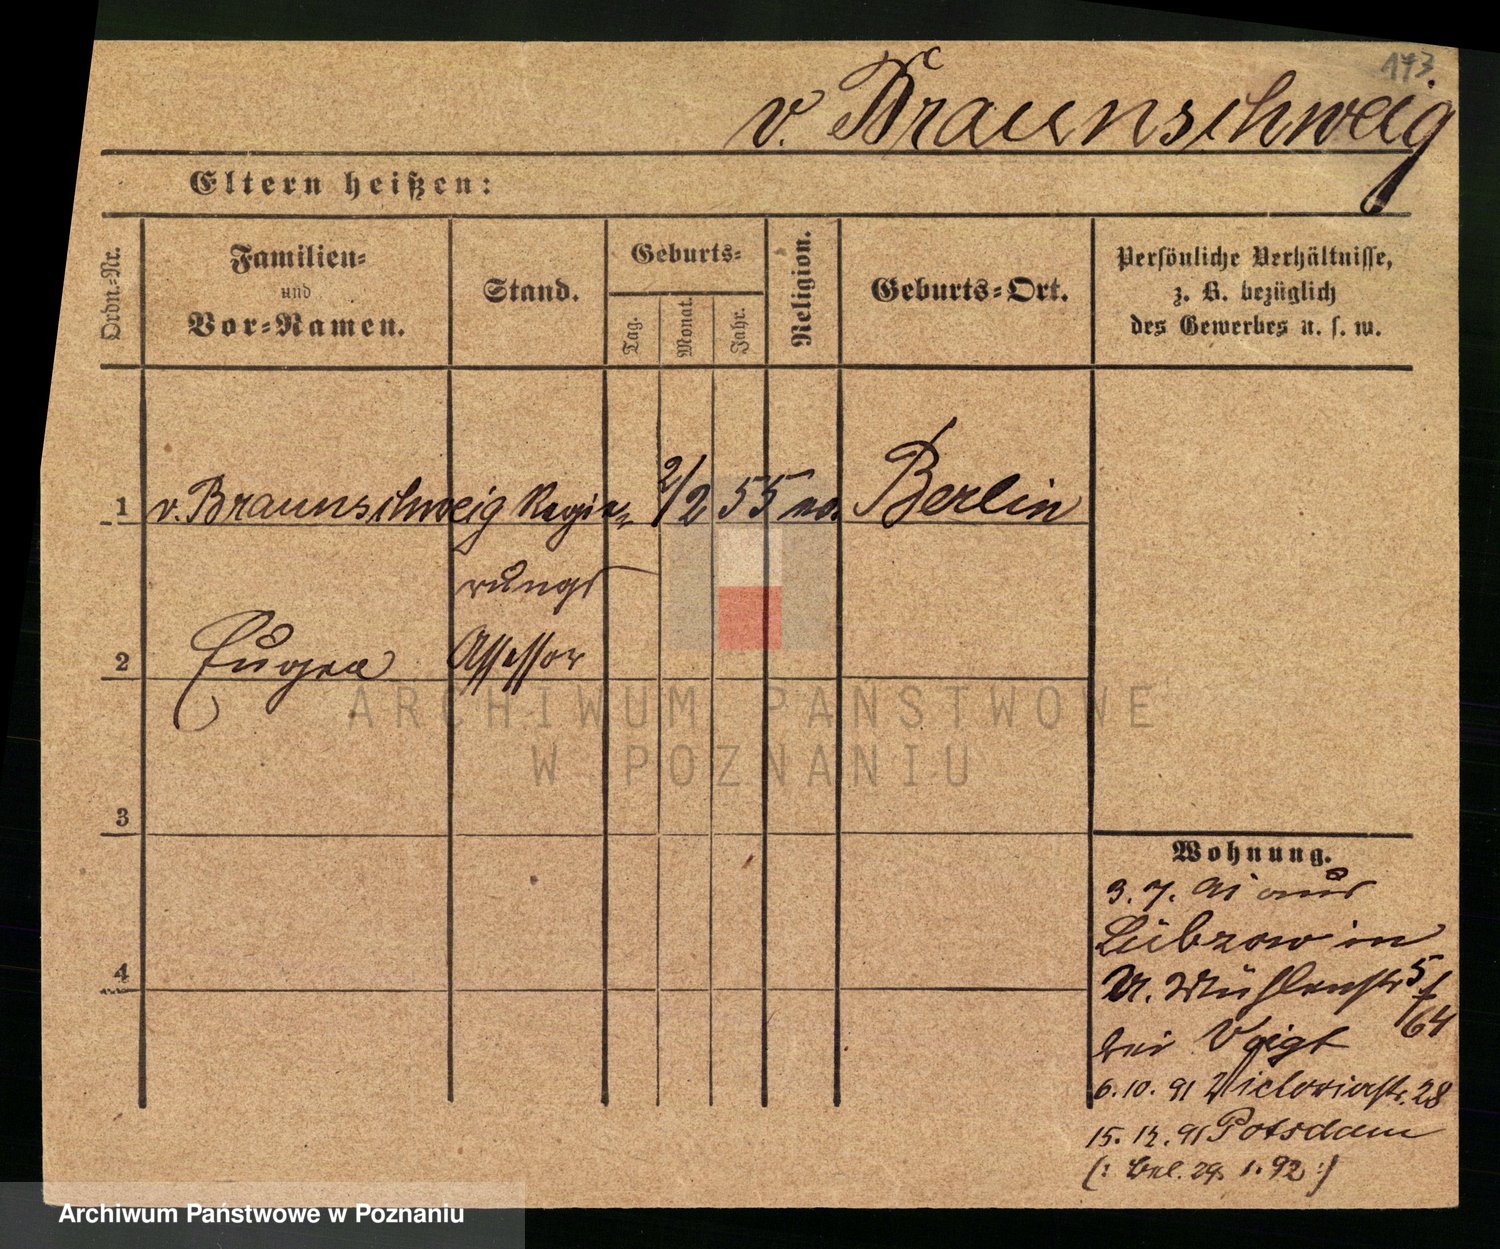 173.
v. Braunschweig
Eltern heißen:
Ordn.-Nr.
Familien-
und
Vor-Namen.
Stand.
Geburts-
Tag.
Monat.
Jahr.
Religion.
Geburts-Ort.
Persönliche Verhältnisse,
z. B. bezüglich
des Gewerbes u. s. w.
1 v. Braunschweig Regie- 2/2 55 Berlin
rungs
2 Eugen Assessor
3
4
Wohnung.
3. 7. 91 aus
Lübzow in
Mühlenstr 5
64
bei Voigt
6. 10. 91 Victoriastr. 28
15. 12. 91 Potsdam
(: 29. 1. 92 :)
ARCHIWUM PAŃSTWOWE
W POZNANIU
Archiwum Państwowe w Poznaniu